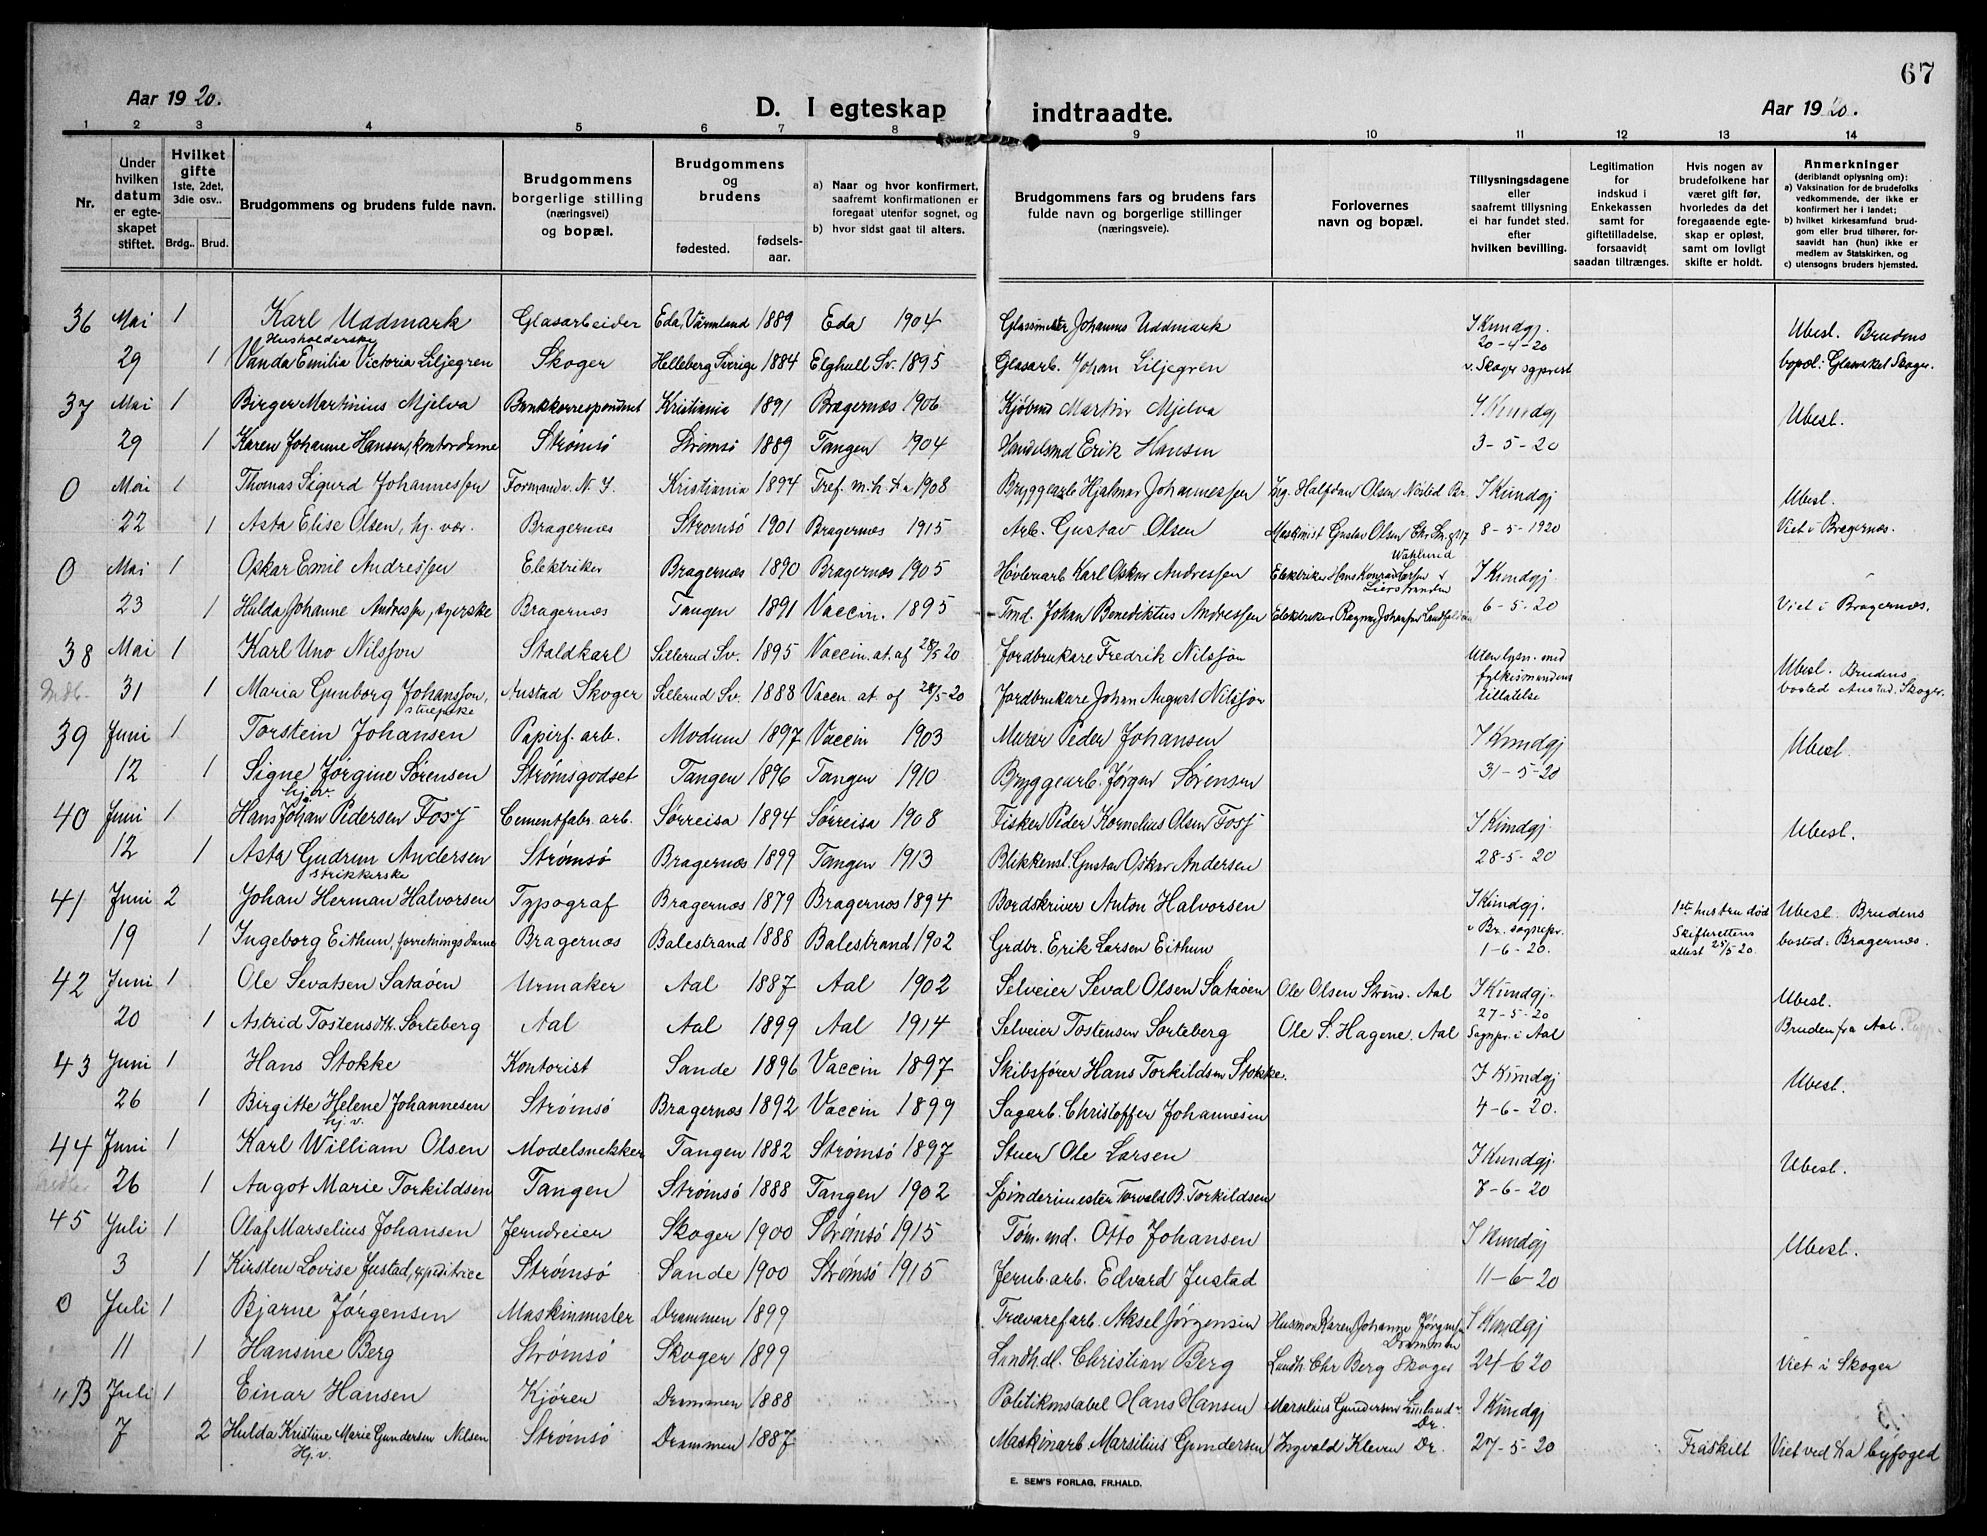 67
Aar 1920.
D. I egteskap indtraadte.
Aar 1920.
1 2 3 4 5 6 7 8 9 10 11 12 13 14
Nr.
Under hvilken datum er egteskapet stiftet.
Hvilket gifte 1ste, 2det, 3die osv..
Brdg.. Brud.
Brudgommens og brudens fulde navn.
Brudgommens borgerlige stilling (næringsvei) og bopæl.
Brudgommens og brudens
fødested. fødselsaar.
a) Naar og hvor konfirmert, saafremt konfirmationen er foregaat utenfor sognet, og
b) hvor sidst gaat til alters.
Brudgommens fars og brudens fars fulde navn og borgerlige stillinger (næringsveie).
Forlovernes navn og bopæl.
Tillysningsdagene eller saafremt tillysning ei har fundet sted. efter hvilken bevilling.
Legitimation for indskud i Enkekassen samt for giftetilladelse, forsaavidt saadan tiltrænges.
Hvis nogen av brudefolkene har været gift før, hvorledes da det foregaaende egteskap er opløst, samt om lovligt skifte er holdt.
Anmerkninger (deriblandt oplysning om):
a) Vaksination for de brudefolks vedkommende, der ikke er konfirmert her i landet;
b) hvilket kirkesamfund brudgom eller brud tilhører, forsaavidt han (hun) ikke er medlem av Statskirken, og
c) utensogns bruders hjemsted.
36 Mai 1 Karl Uddmark Glasarbeider Eda, Värmland 1889 Eda 1904 Glasmester Johannes Uddmark I Kundgj. 20-4-20 Ubesl. Brudens
Husholderske
29 1 Vanda Emilia Victoria Liljegren Skoger Helleberg Sverige 1884 Elghull Sv. 1895 Glasarb. Johan Liljegren v. Skoger sgprest bopæl: Glasverket Skoger.
37 Mai 1 Birger Martinius Mjelva Bankkorrespondent Kristiania 1891 Bragernæs 1906 Kjøbmd Martin Mjelva I Kundgj Ubesl.
29 1 Karen Johanne Hansen, kontordame Strømsø Strømsø 1889 Tangen 1904 Handelsmd Erik Hansen 3-5-20
0 Mai 1 Thomas Sigurd Johannessen Formand v. N. S. Kristiania 1894 Tref. m.h. Kr.a 1908 Bryggearb Hjalmar Johannessen Ing. Halfdan Olsen Nøsted Br. I Kundgj Ubesl.
22 1 Asta Elise Olsen, hj. vær. Bragernæs Strømsø 1901 Bragernæs 1915 Arb. Gustav Olsen Maskinist Gustav Olsen 8-5-1920 Viet i Bragernæs.
0 Mai 1 Oskar Emil Andressen Elektriker Bragernæs 1890 Bragernæs 1905 Høvlevarb Karl Oskar Andressen Elektriker Hans Konrad Larsen Lierstranden I Kundgj
23 1 Hulda Johanne Andress, syerske Bragernæs Tangen 1891 Vaccin. 1895 Tmd. Johan Benediktus Andressen Elektriker Ragnv. Johansen Landfaldøen 6-5-20 Viet i Bragernæs.
38 Mai 1 Karl Uno Nilsson Staldkarl Sillerud Sv. 1895 Vaccin. at. af 28/5 20 Jordbrukare Fredrik Nilsson Uten lysn. med Ubesl. Brudens
31 1 Maria Gunborg Johansson, stuepike Austad Skoger Sillerud Sv. 1888 Vaccn. at af 28/5-20 Jordbrukare Johan August Nilsson fylkesmandens tillatelse bosted Austad, Skoger.
39 Juni 1 Torstein Johansen Papirf. arb. Modum 1897 Vaccin 1903 Murer Peder Johansen I Kundgj Ubesl.
12 1 Signe Jørgine Sørensen hj.v. Strømsgodset Tangen 1896 Tangen 1910 Bryggearb. Jørgen Sørensen 31-5-20
40 Juni 1 Hans Johan Pedersen Fosj Cementfabr. arb. Sørreisa 1894 Sørreisa 1908 Fisker Peder Kornelius Olsen Fosj I Kundgj Ubesl.
12 1 Asta Gudrun Andersen strikkerske Strømsø Bragernæs 1899 Tangen 1913 Blikkensl. Gustav Oskar Andersen 28-5-20
41 Juni 2 Johan Herman Halvorsen Typograf Bragernæs 1879 Bragernæs 1894 Bordskriver Anton Halvorsen I Kundgj. 1ste hustru død Ubesl. Brudens
19 1 Ingeborg Eithun, forretningsdame Bragernæs Balestrand 1888 Balestrand 1902 Grdbr. Erik Larsen Eithun v Br. sognepr. 1-6-20. Skifterettens attest 25/5 20 bosted: Bragernæs.
42 Juni 1 Ole Sevatsen Sataøen Urmaker Aal 1887 Aal 1902 Selveier Seval Olsen Sataøen Ole Olsen Strand. Aal I Kundgj. 27-5-20 Ubesl.
20 1 Astrid Tostens dtr. Sorteberg Aal Aal 1899 Aal 1914 Selveier Tostensen Sorteberg Ole S. Hagene. Aal Sognpr. i Aal Bruden fra Aal.
43 Juni 1 Hans Stokke Kontorist Sande 1896 Vaccin 1897 Skibsfører Hans Torkildsen Stokke. I Kundgj Ubesl.
26 1 Birgitte Helene Johannesen hj. v. Strømsø Bragernæs 1892 Vaccin 1899 Sagarb. Christoffer Johannesen 4-6-20.
44 Juni 1 Karl William Olsen Modelsnekker Tangen 1882 Strømsø 1897 Stuer Ole Larsen I Kundgj. Ubesl.
26 1 Aagot Marie Torkildsen Tangen Strømsø 1888 Tangen 1902 Spinderimester Torvald B. Torkildsen 7-6-20
45 Juli 1 Olaf Marselius Johansen Jerndreier Skoger 1900 Strømsø 1915 Tøm. md. Otto Johansen I Kundgj Ubesl.
3 1 Kirsten Lovise Justad, expeditrice Strømsø Sande 1900 Strømsø 1915 Jernb. arb. Edvard Justad 11-6-20
0 Juli 1 Bjarne Jørgensen Maskinmester Drammen 1899 Trævarefarb. Aksel Jørgensen Husmor Karen Johanne Jørgensen Drammen I Kundgj
11 1 Hansine Berg Strømsø Skoger 1899 Landhdl. Christian Berg Landh. Chr Berg Skoger 24-6 20 Viet i Skoger
"B Juli 1 Einar Hansen Kjører Drammen 1888 Politikonstabel Hans Hansen Marselius Gundersen Dr. I Kundgj
7 2 Hulda Kristine Marie Gundersen Nilsen Hj. v. Strømsø Drammen 1887 Maskinarb Marsilius Gundersen Ingvald Kleven Dr. 27-5-20 Fraskilt Viet ved Ka byfoged
E. SEM'S FORLAG, FR.HALD.